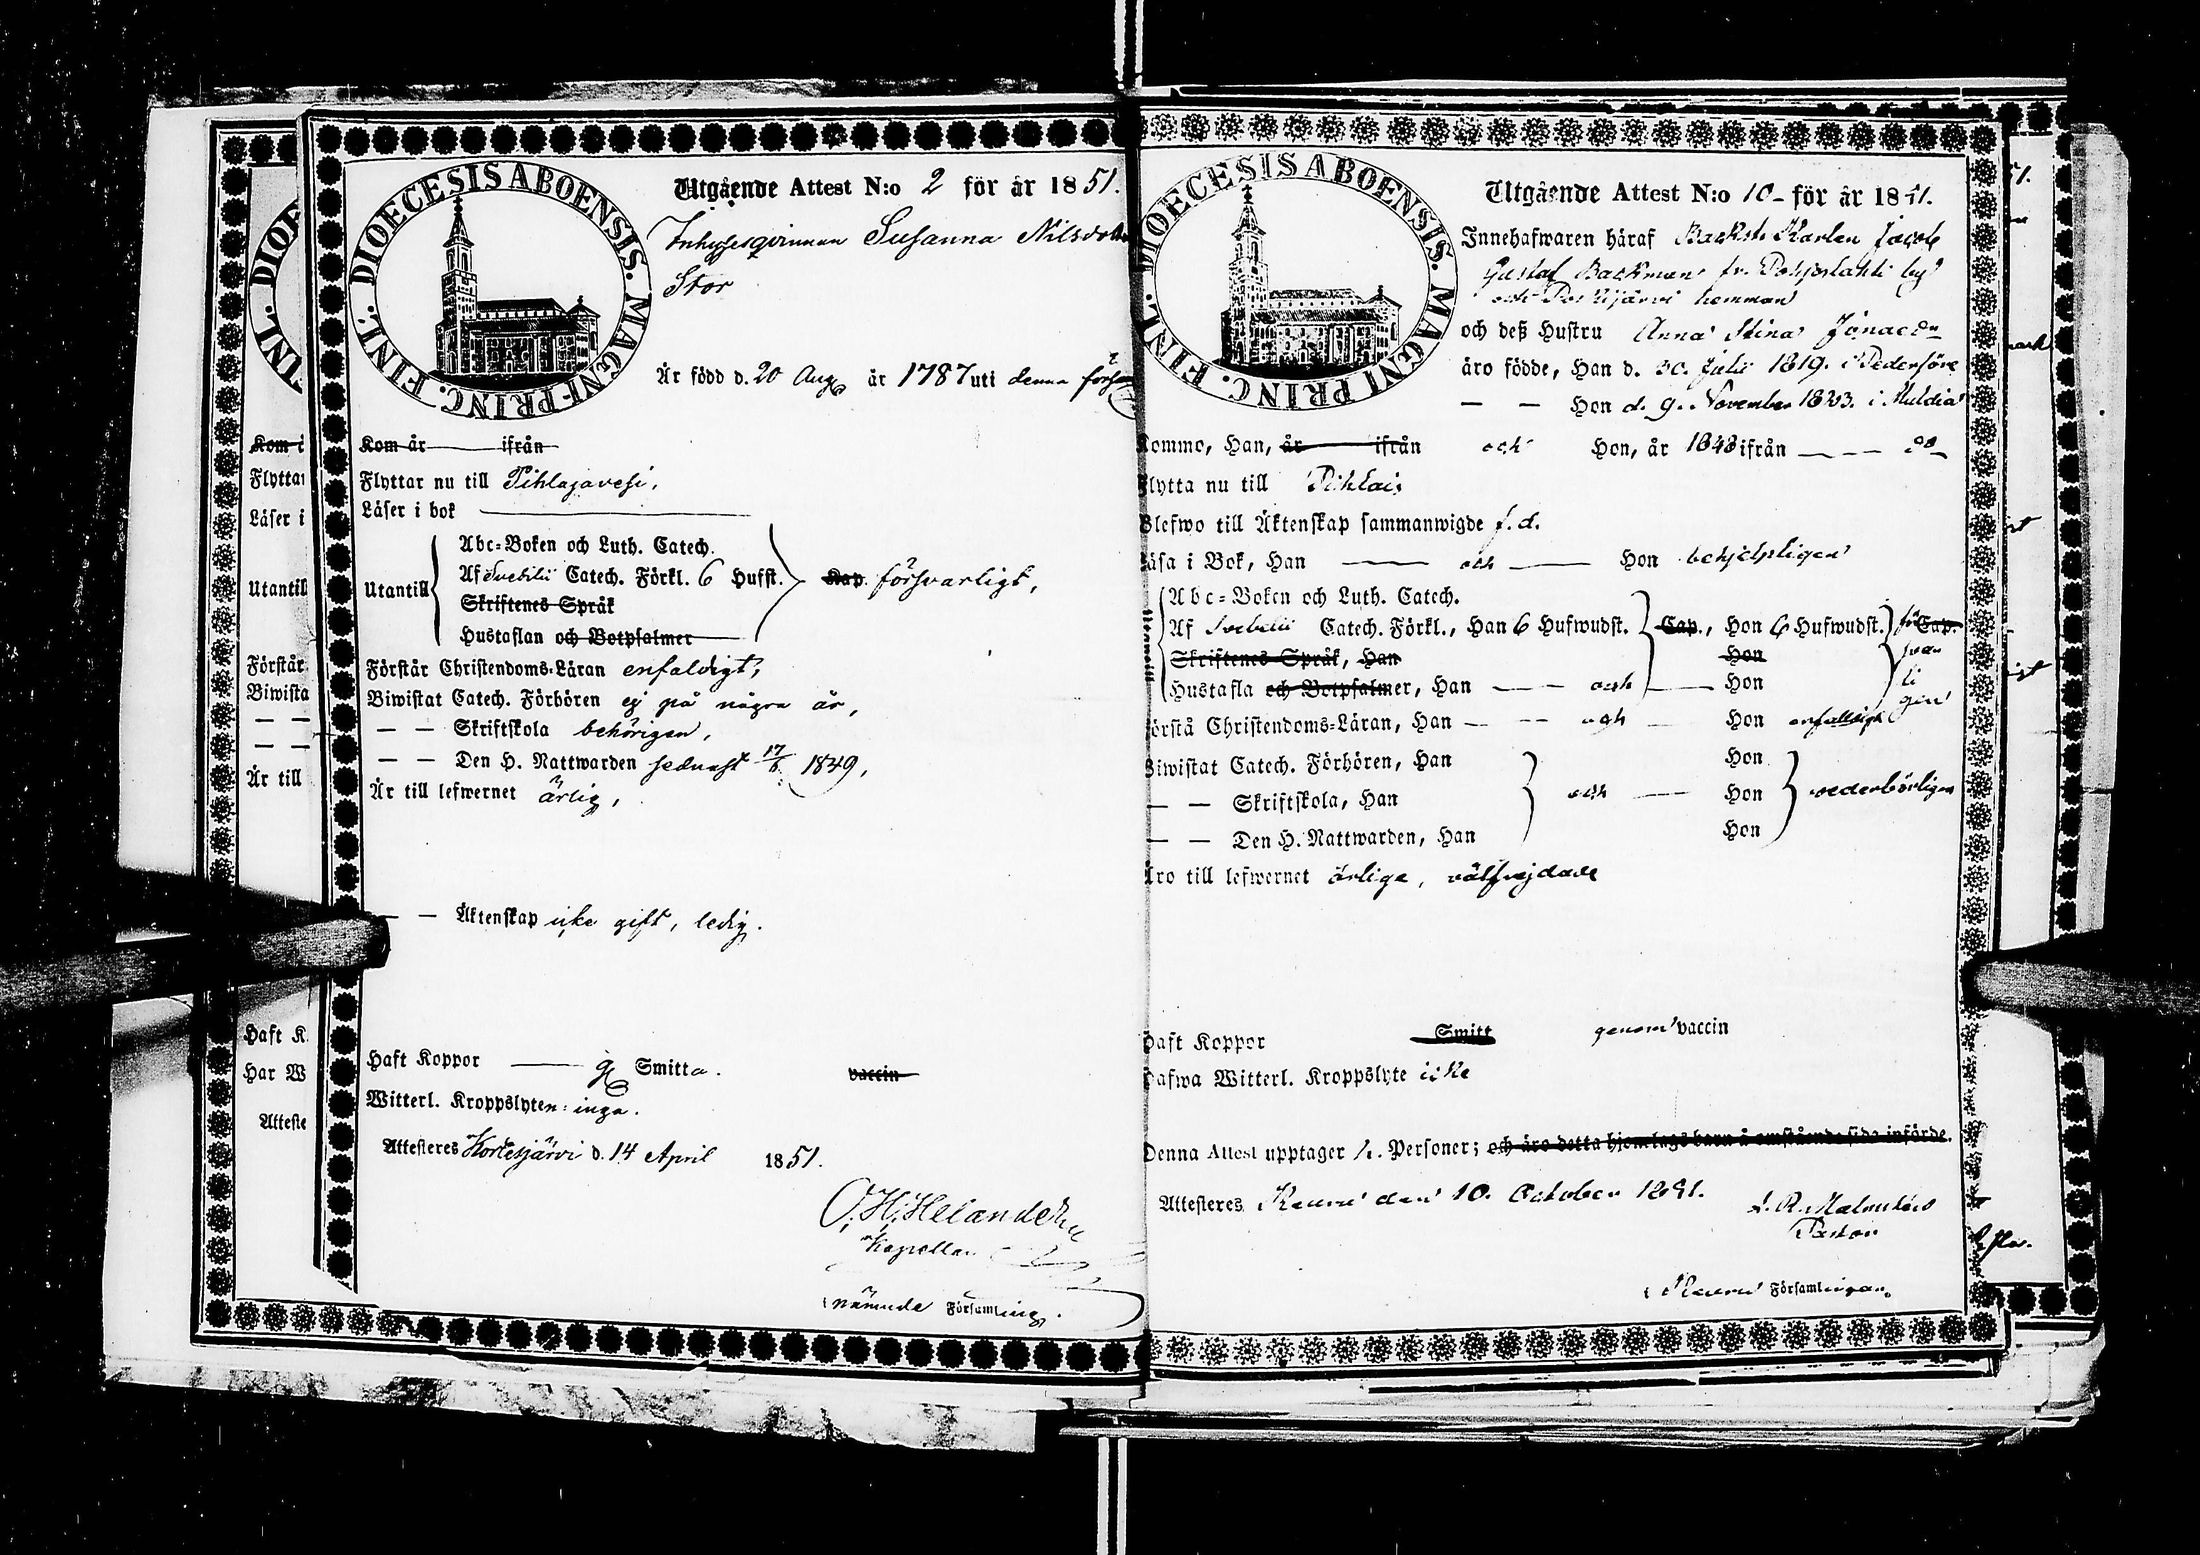 DIOECESIS ABOENSIS. MAGNI PRINC. FINL.
Utgående Attest N:o 2 för år 1851.
Inhysesqvinnan Susanna Nilsdott
Stor
Är född d. 20 Aug år 1787 uti denna förs
Kom år ifrån
Flyttar nu till Pihlajavesi,
Läser i bok
Utantill
Abc-Boken och Luth. Catech.
Af Svebilii Catech. Förkl. 6 Hufst. Kap. försvarligt,
Skriftenes Språk
Hustaflan och Botpsalmer
Förstår Christendoms-Läran enfaldigt,
Biwistat Catech. Förhören ej på några år,
— — Skriftskola behörigen,
— — Den H. Nattwarden sednast 17/6 1849,
Är till lefwernet ärlig,
— — Äktenskap icke gift, ledig.
Haft Koppor Smitta. vaccin
Witterl. Kroppslyten: inga.
Attesteres Kortesjärvi d. 14 April 1851.
O. H. Helander
Kapellan
i nämnde Församling.
DIOECESIS ABOENSIS. MAGNI PRINC. FINL.
Utgående Attest N:o 10 för år 1851.
Innehafwaren häraf Backst. Karlen Jacob
Gustaf Backman fr. Pohjoslahti by
hemman
och deß Hustru Anna Stina
äro födde, Han d. 30. Julii 1819. i Pedersöre
— — Hon d. 9. November 1823. i Multia
Kommo, Han, år ifrån och Hon, år 1848 ifrån
Flytta nu till
Blefwo till Äktenskap sammanwigde f. d.
Läsa i Bok, Han — och — Hon behjelpligen
Abc-Boken och Luth. Catech.
Af Svebilii Catech. Förkl., Han 6 Hufwudst. Cap., Hon 6 Hufwudst. Cap.
för
svar
li
gen
Skriftenes Språk, Han Hon
Hustafla och Botpsalmer, Han — — och — Hon
Förstå Christendoms-Läran, Han — — och — Hon enfaldigt
Biwistat Catech. Förhören, Han Hon
— — Skriftskola, Han och — Hon vederbörligen
— — Den H. Nattwarden, Han Hon
Äro till lefwernet ärliga, välfrejdade
Haft Koppor Smitt genom vaccin
Hafwa Witterl. Kroppslyte icke
Denna Attest upptager 2. Personer; och äro detta hjonelags barn å omstående sida införde.
Attesteres Keuru den 10. October 1851.
Pastor
i Keuru Församlingar.
DIOE
FINL.
Kom
Flyttar
Läser i
Utantill
Förstår
Biwista
— —
— —
Är till
Haft K
Har W
Atteste